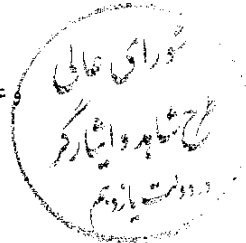 شورای عالی
طرح شاهد و ایثارگر
در دولت یازدهم